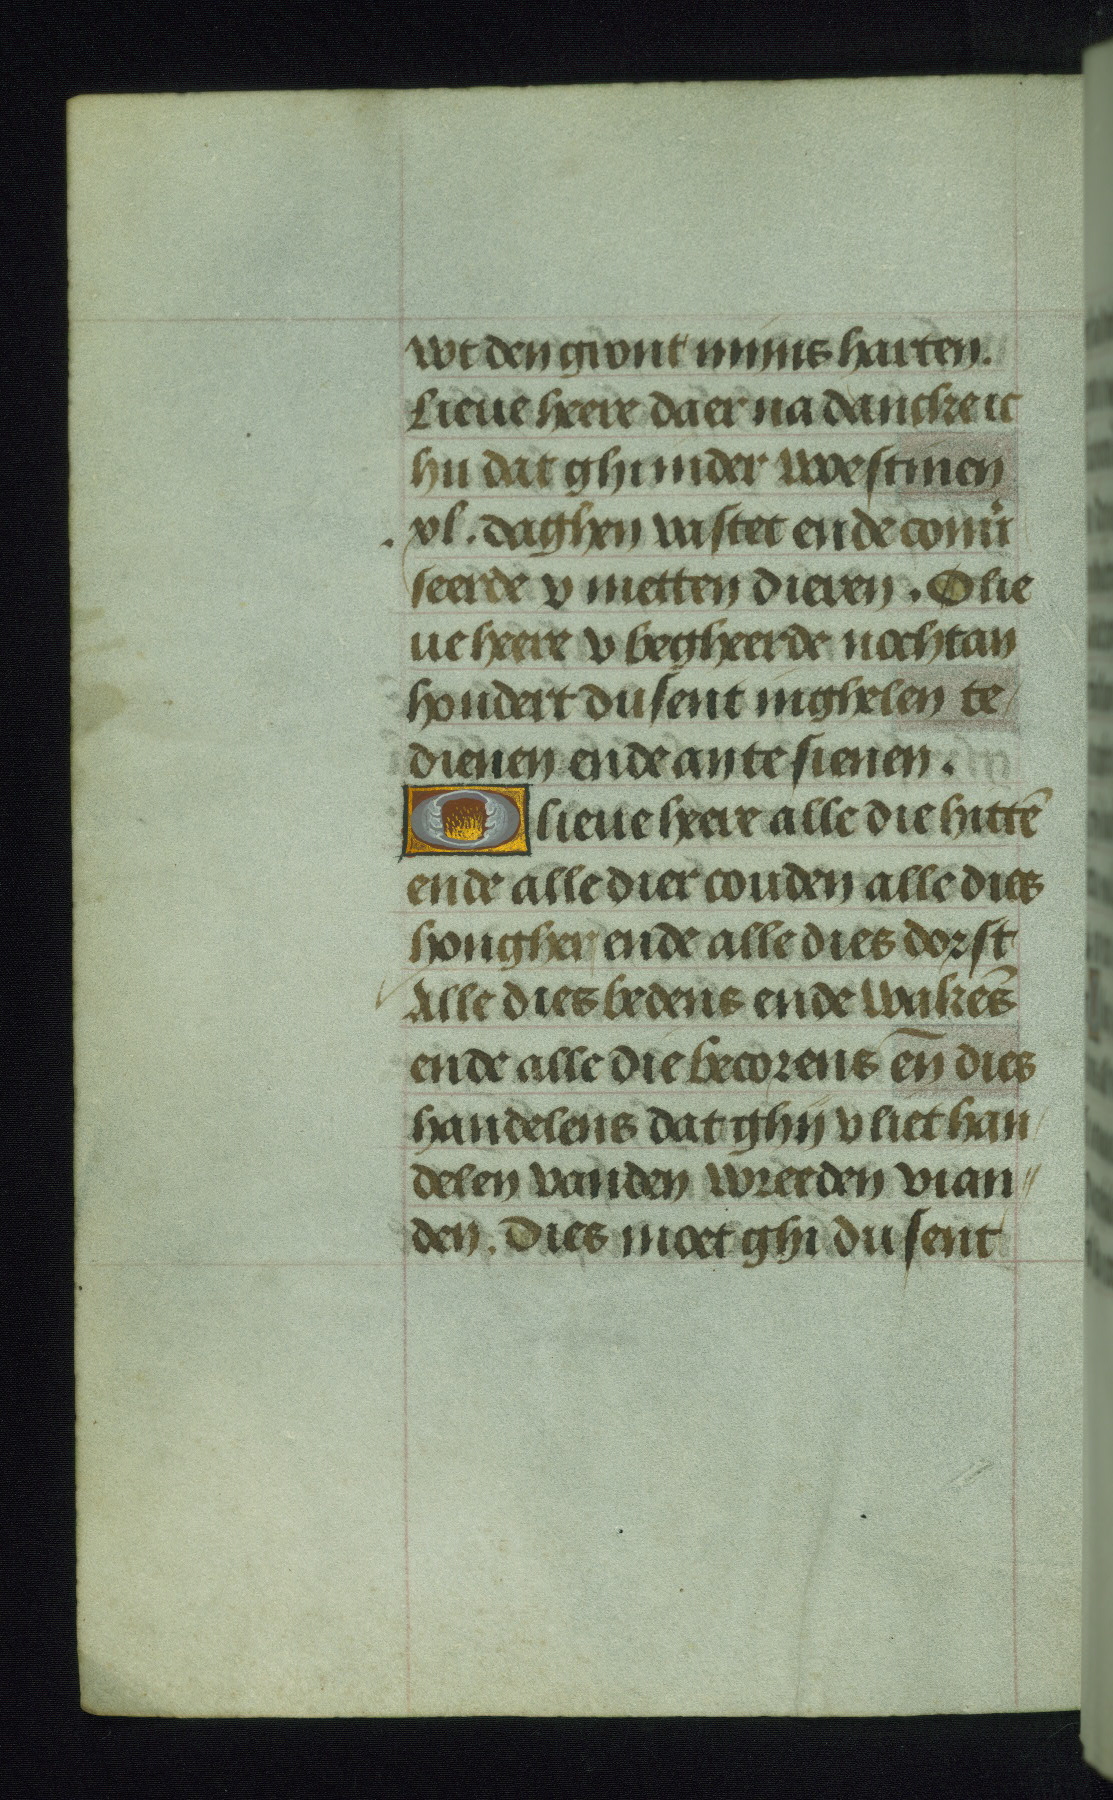 wt den gront mijns harten.
Lieue heere daer na dancke ic
hu dat ghi inder woestinen
.xl. daghen vastet ende comũ
seerde v metten dieren. O lie
ue heere v begheerde nochtan
hondert dusent inghelen te
dienen ende an te sienen.
O lieue heere alle die hittē
ende alle dier couden alle dies
hongher ende alle dies dorst
Alle dies bedens ende wakēs
ende alle die becorens eñ dies
handelens dat ghij v liet han
delen vanden wreeden vian〃
den. Dies moet ghi dusent